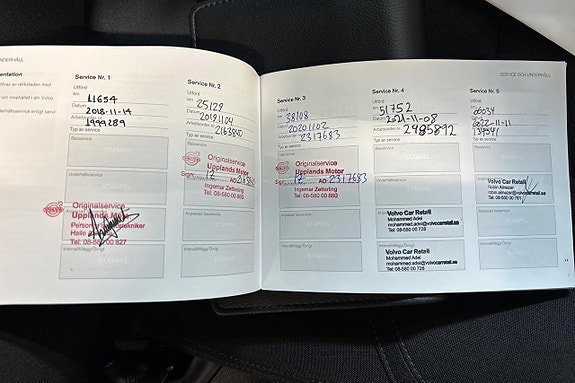 Service Nr. 1
Utförd
km
11654
Datum
2018-11-14
1999289
Typ av service
Basservice
STÄMPEL
Originalservice
Upplands Motor
Tel: 08-580 00 827
Intervalltillägg/Övrigt
STÄMPEL
Service Nr. 2
Utförd
km
25129
Datum
20191104
Arbetsorder nr
2163840
Typ av service
Basservice
Originalservice
Upplands Motor
Sign
AO
Ingemar Zetterling
Tel: 08-580 00 860
STÄMPEL
Intervalltillägg/Övrigt
STÄMPEL
Service Nr. 3
Utförd
km
38108
Datum
20201102
Arbetsorder nr
2317683
Typ av service
Basservice
Originalservice
Upplands Motor
Sign
AO 2317683
Ingemar Zetterling
Tel: 08-580 00 860
STÄMPEL
Intervalltillägg/Övrigt
STÄMPEL
Service Nr. 4
Utförd
km
51752
Datum
2021-11-08
2485892
Typ av service
Basservice
STÄMPEL
Underhållsservice
STÄMPEL
Volvo Car Retail
Mohammed Adel
mohammed.adel@volvocarretail.se
Tel: 08-580 00 728
Intervalltillägg/Övrigt
Volvo Car Retail
Mohammed Adel
mohammed.adel@volvocarretail.se
Tel: 08-580 00 728
SERVICE OCH UNDERHÅLL
Service Nr. 5
Utförd
66034
2022-11-11
Typ av service
Basservice
STÄMPEL
Volvo Car Retail
Robin Alinezar
Tel: 08-580 00 761
STÄMPEL
Intervalltillägg/Övrigt
STÄMPEL